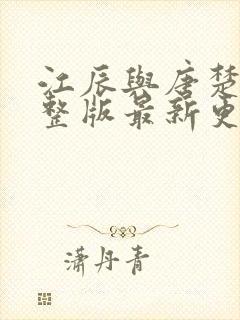 江辰與唐楚
整版最新更
瀟丹青